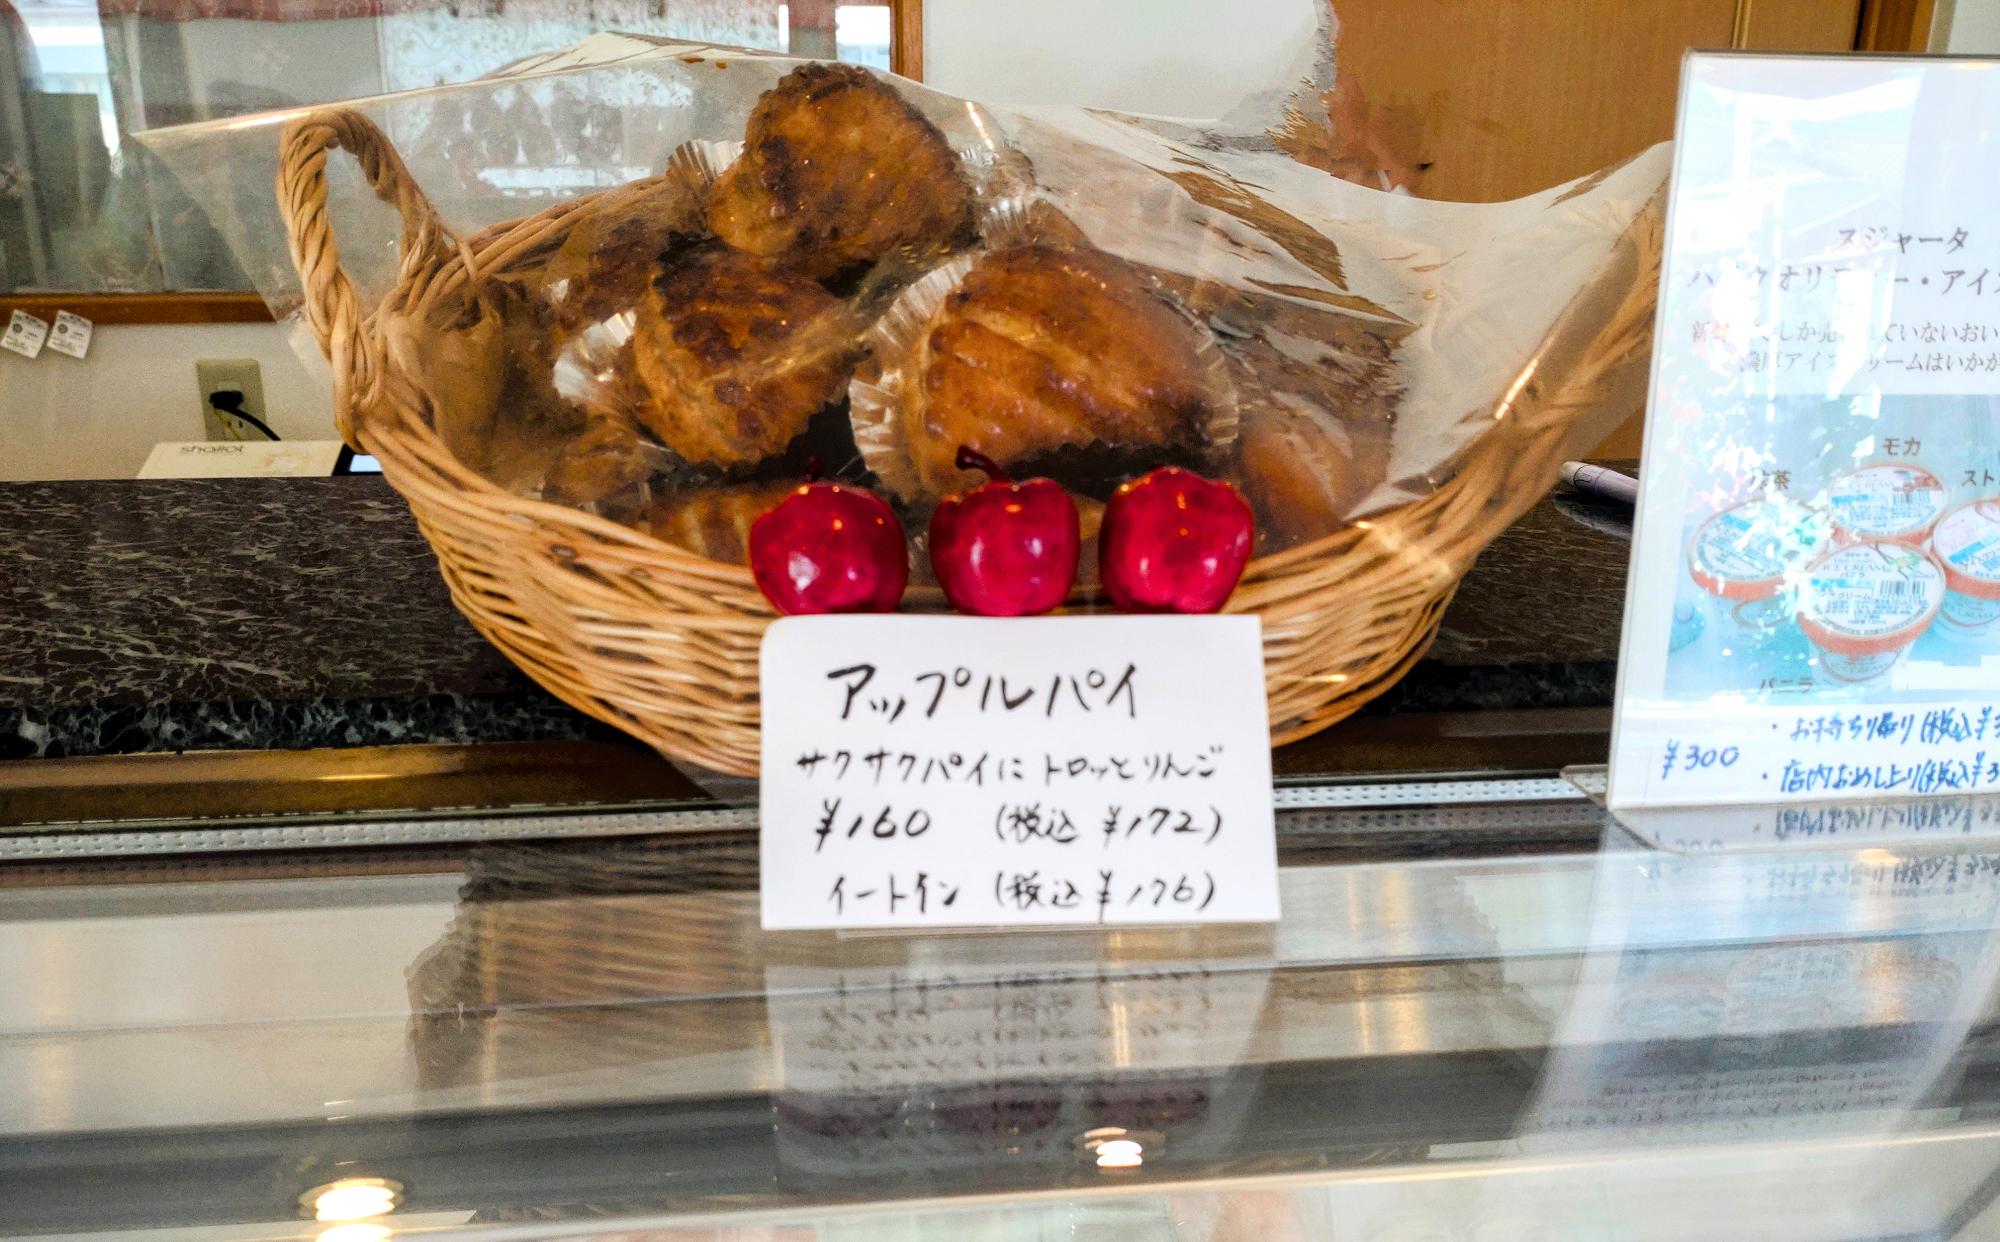 アップルパイ
サクサクパイにトロッとりんご
¥160 (税込 ¥172)
イートイン (税込 ¥176)
shallot
スジャータ
・アイス
しか売 れていないおい
濃厚アイス クリームはいかが
モカ
茶
スト
ICE CREAM
バニラ
アイスクリーム
バニラ
¥300
・お持ち帰り (税込¥3
・店内お召し上り (税込¥3